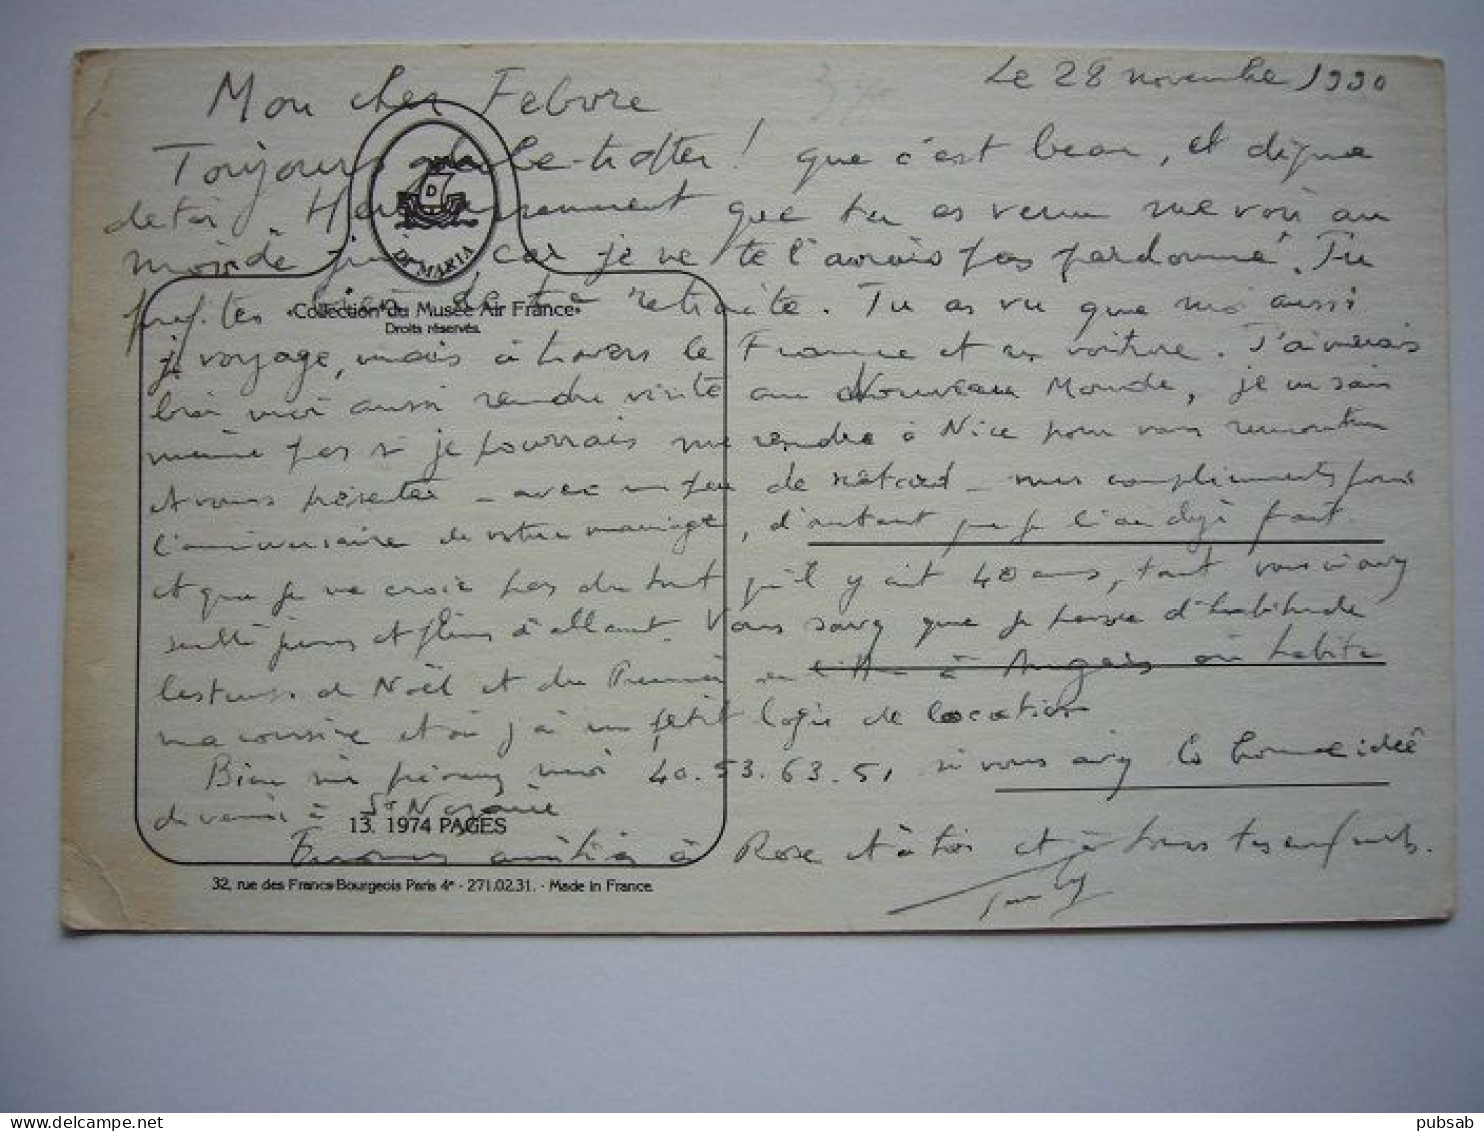 Le 28 novembre 1990
Mon cher Febvre
Toujours globe-trotter! que c'est beau, et digne
de toi. Heureusement que tu es venu me voir au
mois de juin, car je ne te l'aurais pas pardonné. Tu
profites bien de ta retraite. Tu as vu que moi aussi
je voyage, mais à travers la France et en voiture. J'aimerais
bien moi aussi rendre visite au Nouveau Monde, je ne sais
même pas si je pourrais me rendre à Nice pour vous rencontrer
et vous présenter - avec un peu de retard - mes compliments pour
l'anniversaire de votre mariage, d'autant que je l'ai déjà fait
et que je ne crois pas du tout qu'il y ait 40 ans, tant vous m'avez
semblé jeunes et pleins d'allant. Vous savez que je passe d'habitude
les temps de Noël et du Premier en à où habite
ma cousine et où j'ai un petit logis de location
Bien sûr prévenez moi 40.53.63.51 si vous avez la bonne idée
de venir à St Nazaire
amitiés à Rose et à toi et à tous tes enfants.
D
DE MARIA
«Collection du Musée Air France»
Droits réservés.
13. 1974 PAGES
32, rue des Francs-Bourgeois Paris 4e - 271.02.31. - Made in France.
pubsab